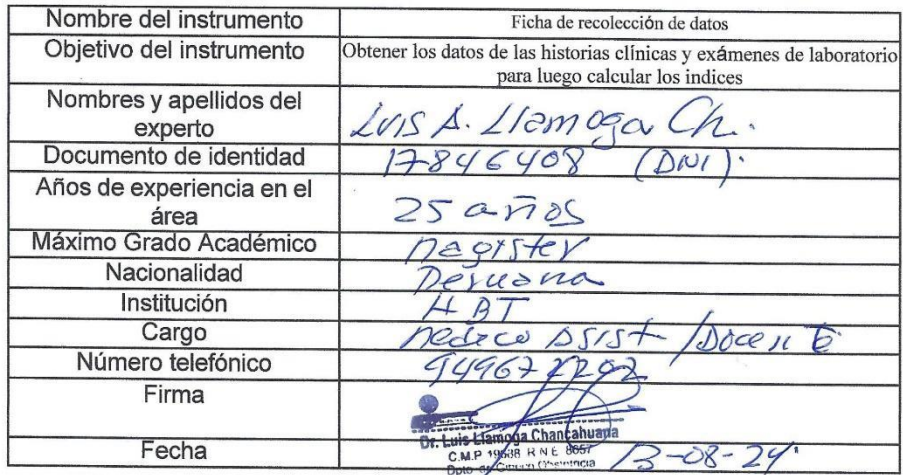 Nombre del instrumento Ficha de recolección de datos
Objetivo del instrumento Obtener los datos de las historias clínicas y exámenes de laboratorio
para luego calcular los indices
Nombres y apellidos del
experto Luis A. Llamoga Ch.
Documento de identidad 17846408 (DNI).
Años de experiencia en el
área 25 años
Máximo Grado Académico magister
Nacionalidad Peruana
Institución HBT
Cargo medico Asist /Docente
Número telefónico
Firma
Dr. Luis Llamoga Chancahuana
C.M.P R N E
Fecha 13-08-24.